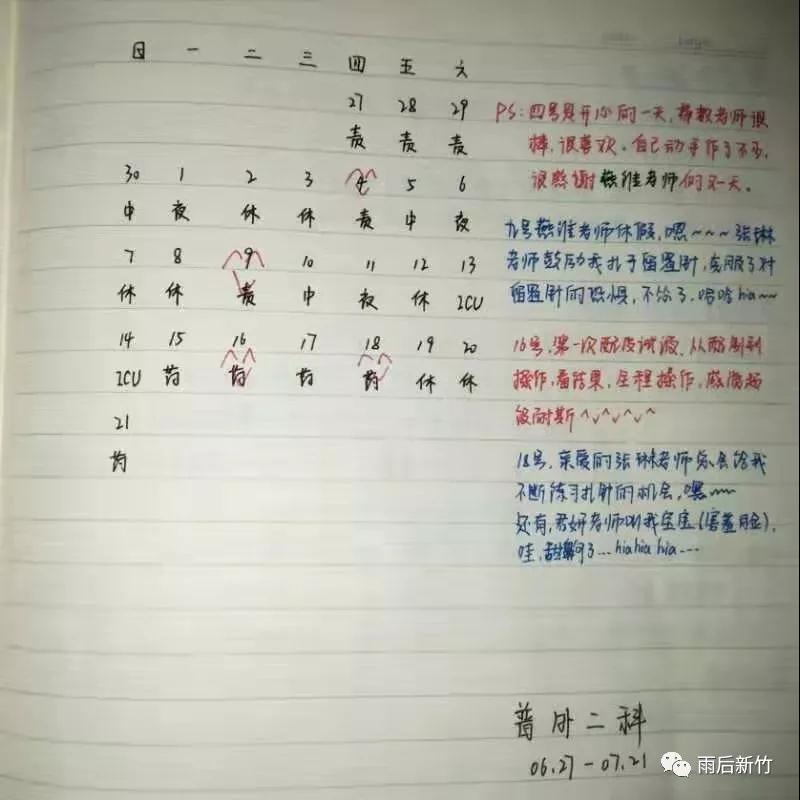 日 一 二 三 四 五 六
27 28 29
责 责 责
30 1 2 3 4 5 6
中 夜 休 休 责 中 夜
7 8 9 10 11 12 13
休 休 责 中 夜 休 ICU
14 15 16 17 18 19 20
ICU 药 药 药 药 休 休
21
药
PS:四号是开心的一天,带教老师很
棒,很喜欢。自己动手作了不少,
很感谢 老师的又一天。
九号 老师休假,嘿~~~张琳
老师鼓励我扎了留置针,克服了对
留置针的恐惧,不怂了,哈哈hia~~
16号,第一次配皮试液,从配制到
操作,看结果,全程操作,感激杨
老师 ^v^v^v^
18号,亲爱的张琳老师总会给我
不断练习扎针的机会,嘿~~~
还有,君妍老师叫我宝宝(害羞脸),
哇, 了...hia hia hia...
普外二科
06.27-07.21
雨后新竹